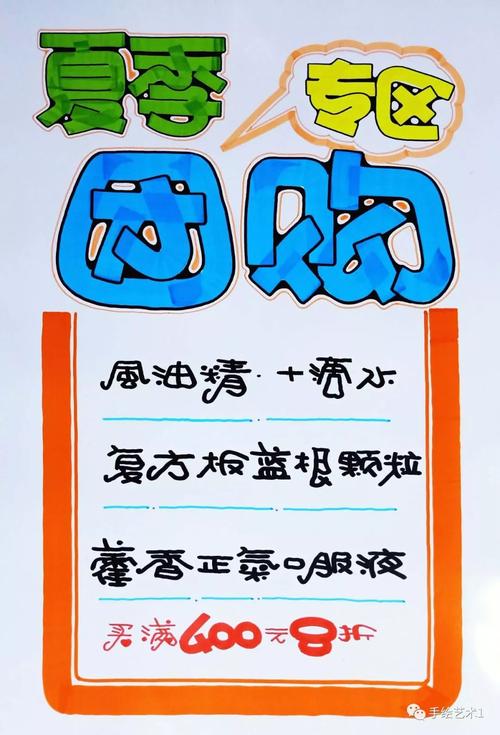 夏季
专区
团购
風油精·十滴水
复方板蓝根颗粒
藿香正氣口服液
买满400元8折
手绘艺术1